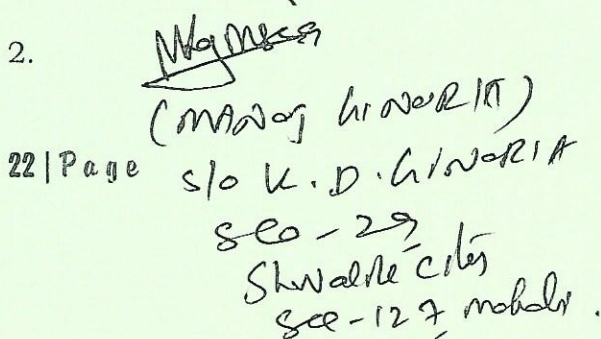 2.
(MANOJ GINORIA)
22 | Page
S/o K. D. GINORIA
SCO - 29
Shivalik City
Sec - 127 Mohali.